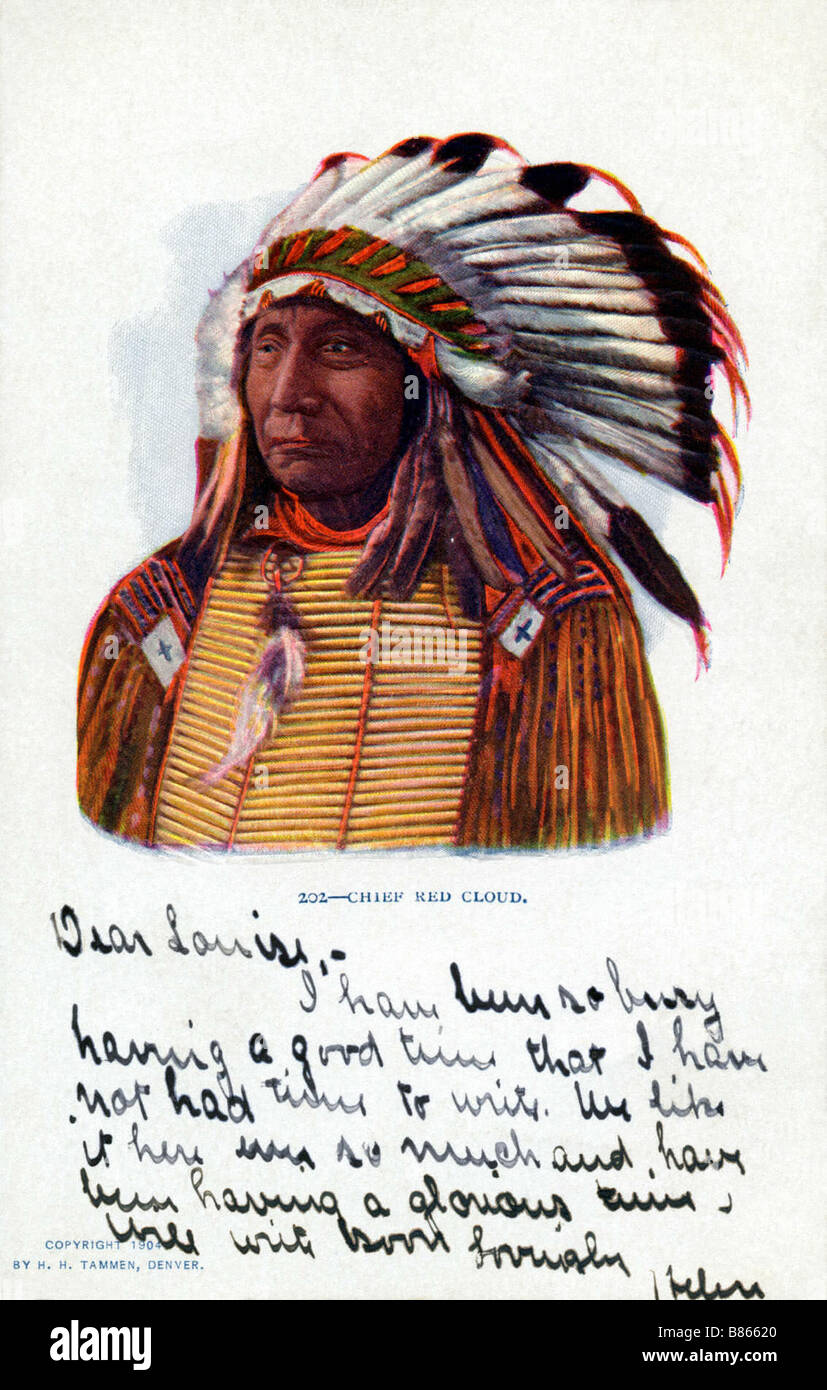 alamy
202—CHIEF RED CLOUD.
Dear Louise,-
I have been so busy
having a good time that I have
not had time to write. We like
it here ever so much and have
been having a glorious time.
Will write soon Lovingly
Helen
COPYRIGHT 1904
BY H. H. TAMMEN, DENVER.
alamy
Image ID: B86620
www.alamy.com